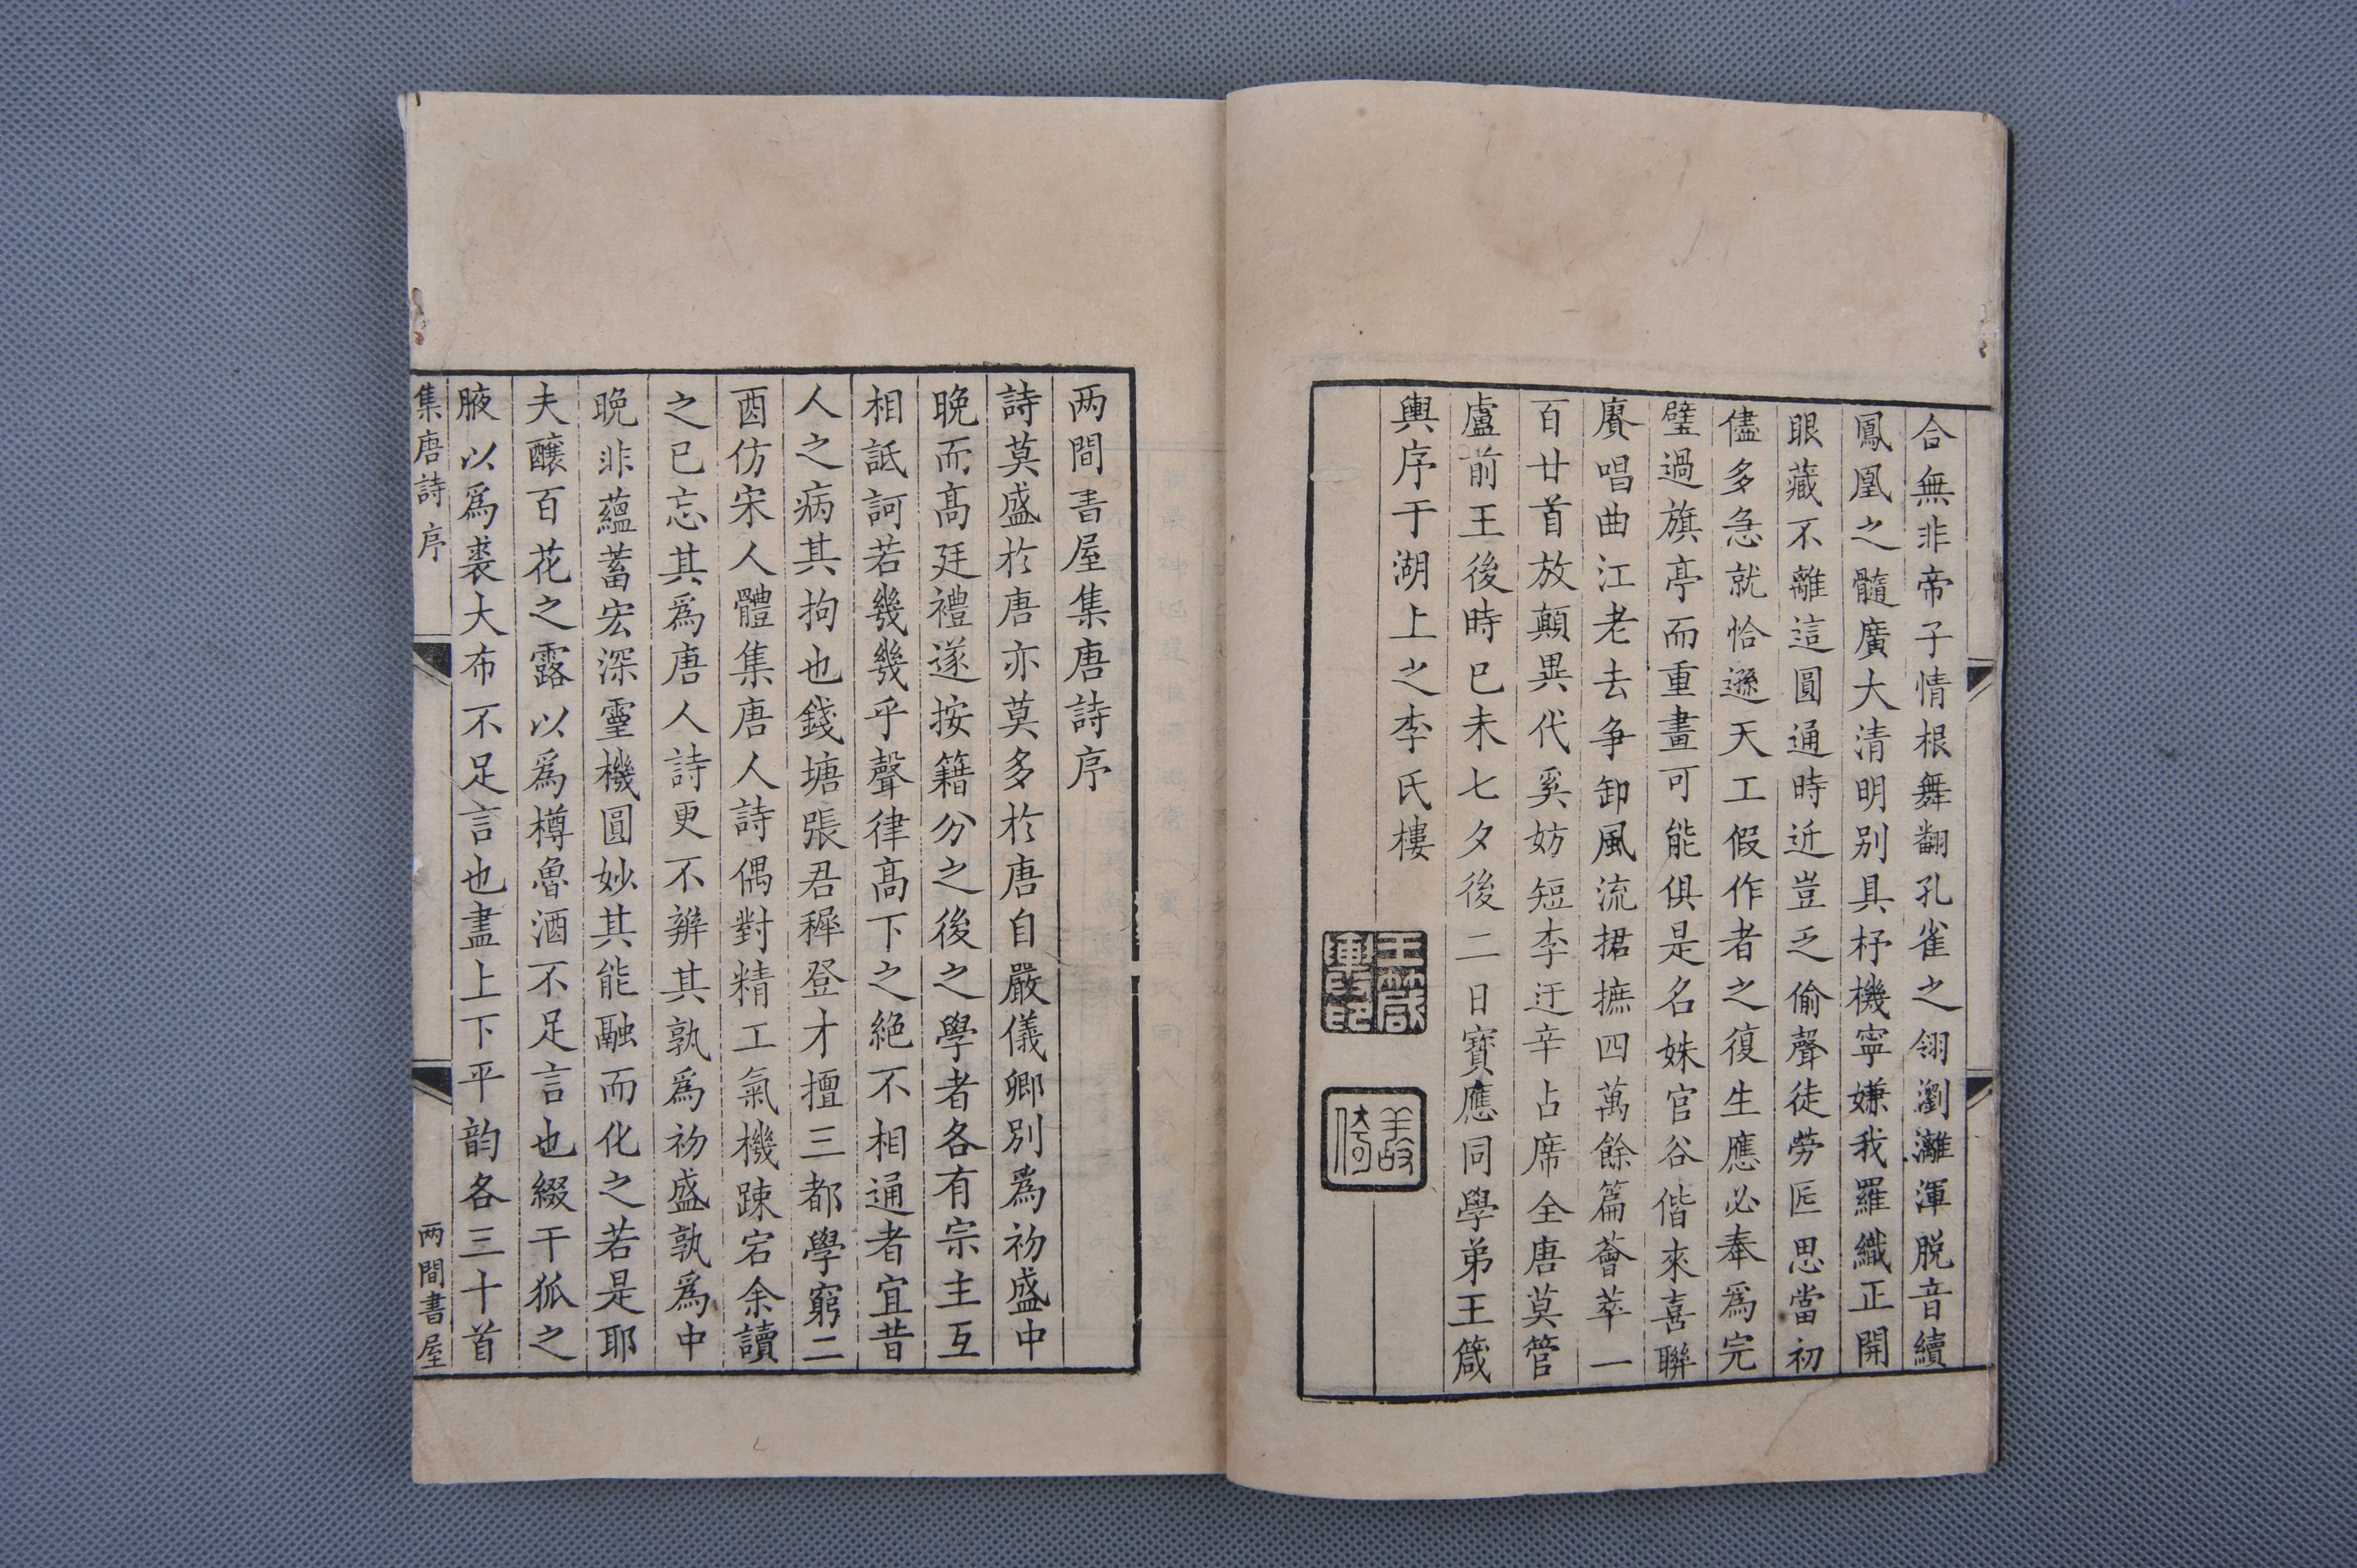 合無非帝子情根舞翻孔雀之翎瀏灕渾脱音續
鳳凰之髓廣大清明別具杼機寧嫌我羅織正開
眼藏不離這圓通時近豈乏偷聲徒勞匠思當初
儘多急就恰遜天工假作者之復生應必奉爲完
璧過旗亭而重畫可能俱是名姝官谷偕來喜聯
賡唱曲江老去爭卸風流捃摭四萬餘篇薈萃一
百廿首放顛異代奚妨短李迂辛占席全唐莫管
盧前王後時巳未七夕後二日寶應同學弟王箴
輿序于湖上之李氏樓
王箴輿印
两間書屋集唐詩序
詩莫盛於唐亦莫多於唐自嚴儀卿別爲初盛中
晚而髙廷禮遂按籍分之後之學者各有宗主互
相詆訶若幾幾乎聲律髙下之絶不相通者宜昔
人之病其拘也錢塘張君穉登才擅三都學窮二
酉仿宋人體集唐人詩偶對精工氣機踈宕余讀
之已忘其爲唐人詩更不辨其孰爲初盛孰爲中
晚非蘊蓄宏深靈機圓妙其能融而化之若是耶
夫釀百花之露以爲樽魯酒不足言也綴干狐之
腋以爲裘大布不足言也盡上下平韵各三十首
集唐詩 序
两間書屋